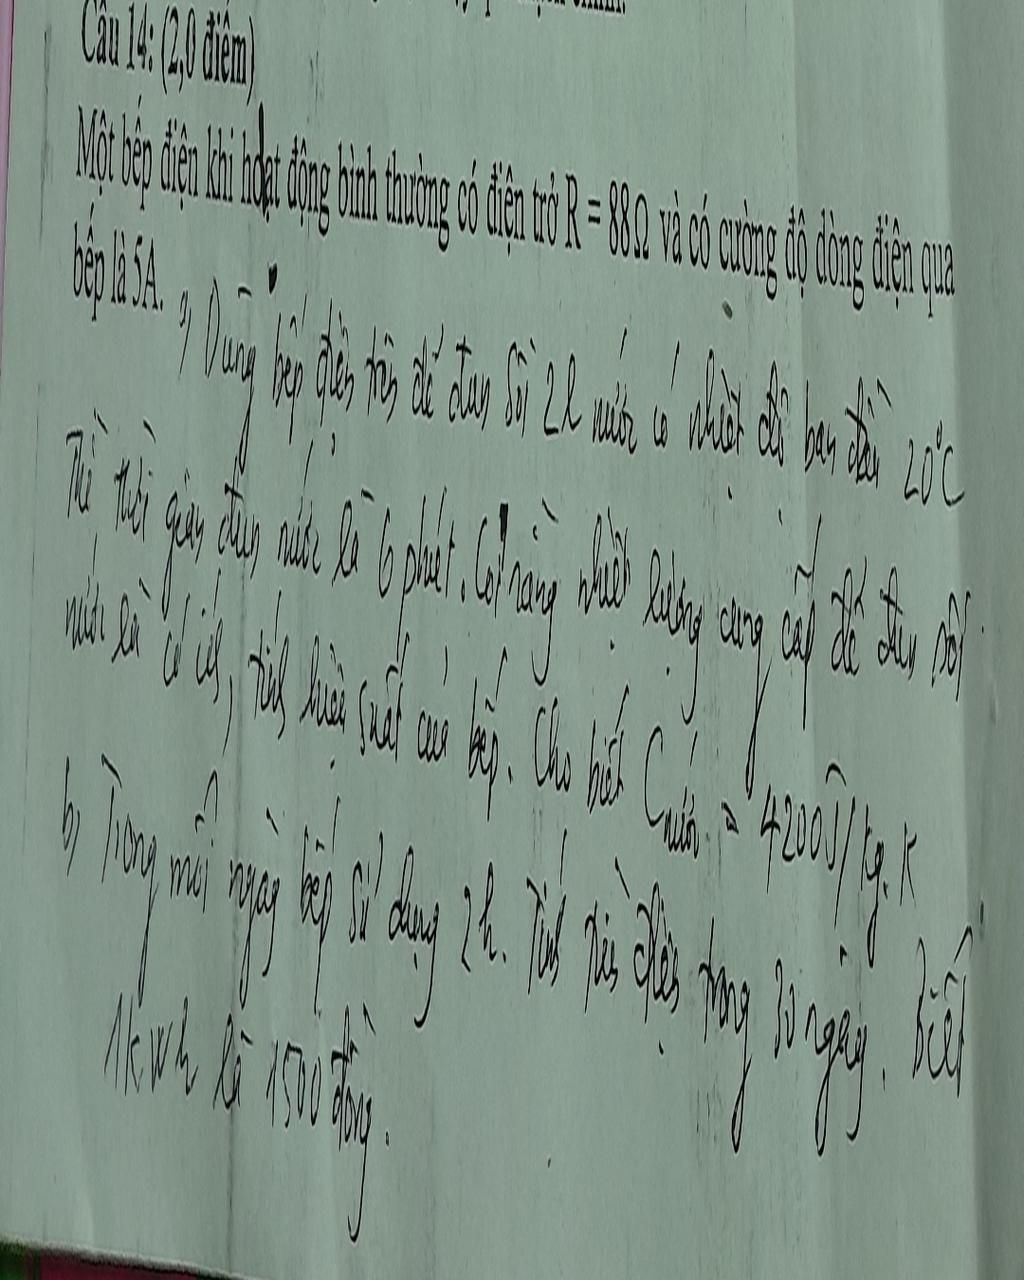 Câu 14: (2,0 điểm)
Một bếp điện khi hoạt động bình thường có điện trở R = 88Ω và có cường độ dòng điện qua
bếp là 5A. a) Dùng bếp điện trên để đun sôi 2l nước có nhiệt độ ban đầu 20°C
Thì thời gian đun nước là 6 phút. Coi rằng nhiệt lượng cung cấp để đun sôi
nước là có ích, tính hiệu suất của bếp. Cho biết Cnước = 4200J/kg.K
b) Trong mỗi ngày bếp sử dụng 2h. Tính tiền điện trong 30 ngày. Biết
1kWh là 1500 đồng.